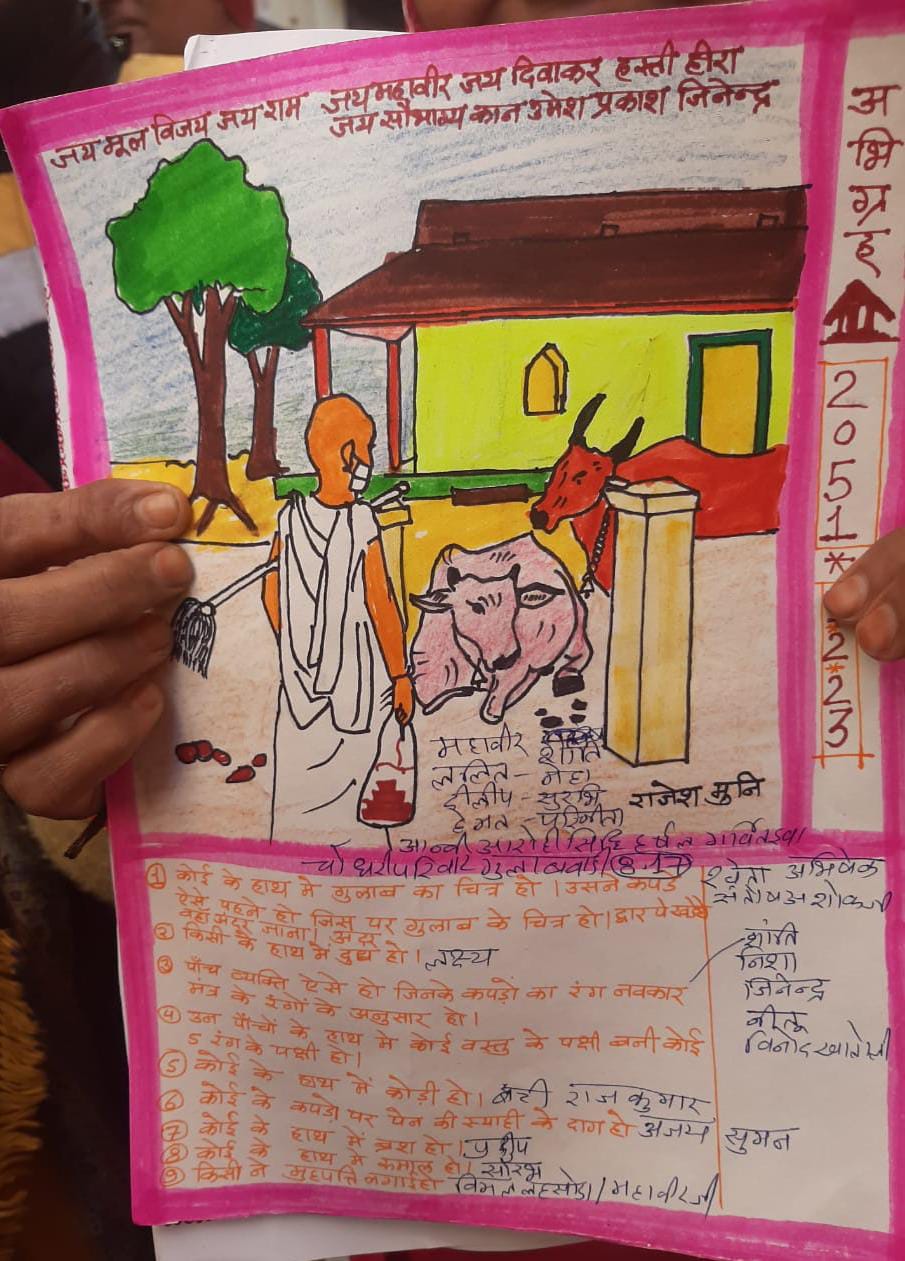 जय मूल विजय जय राम जय महावीर जय दिवाकर हस्ती हीरा
जय सौभाग्य कान उमेश प्रकाश जिनेन्द्र
अभिग्रह
2051*
2*23
महावीर
शांति
ललित - नेहा
दीलीप - सुरभि
हेमंत -
राजेश मुनि
चौधरी परिवार गुलाबबाडी
① कोई के हाथ मे गुलाब का चित्र हो। उसने कपडे
ऐसे पहने हो जिस पर गुलाब के चित्र हो। द्वार पे रखडे
वहा अंदर जाना। अंदर
② किसी के हाथ मे दुध हो। लक्ष्य
③ पाँच व्यक्ति ऐसे हो जिनके कपडो का रंग नवकार
मंत्र के रंगों के अनुसार हो।
④ उन पाँचो के हाथ मे कोई वस्तु के पक्षी बनी कोई
5 रंग के पक्षी हो।
⑤ कोई के हाथ में कोडी हो। राजकुमार
⑥ कोई के कपडो पर पेन की स्याही के दाग हो अजय
⑦ कोई के हाथ में ब्रश हो। प्रदीप
⑧ कोई के हाथ मे रुमाल हो। सौरभ
⑨ किसी ने मुहपत्ति लगाई हो विमल लहसोडा / महावीर जी
श्वेता अभिषेक
संतोष अशोक जी
शांति
निशा
जिनेन्द्र
नीलू
विनोद
सुमन